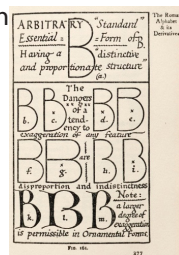 n
The Roman
Alphabet
& its
Derivatives
ARBITRARY "Standard"
Essential = B = Form of B.
Having a "distinctive
and proportionate structure"
(a.)
The
Dangers
of a
tend-
ency to
b. c. d. e.
exaggeration of any feature
are
f. g. h. i.
disproportion and indistinctness
Note:
a larger
degree of
exaggeration
k. l. m.
is permissible in Ornamental Forms.
FIG. 162.
277